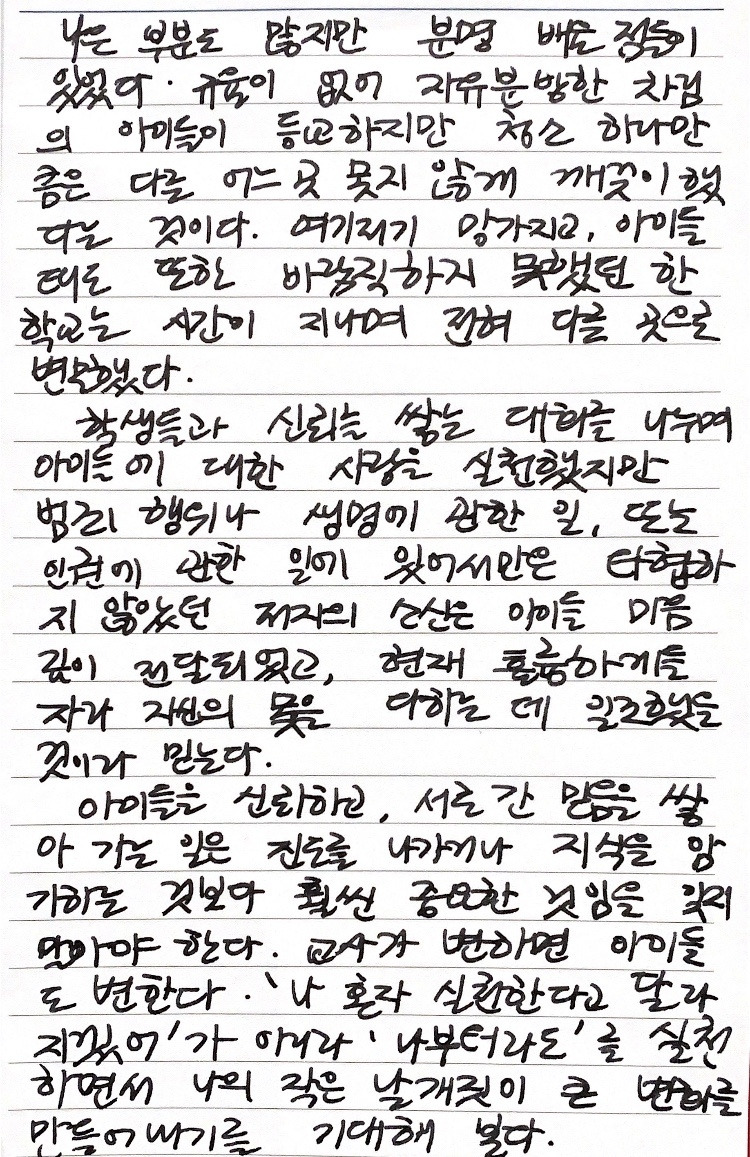 나은 부분도 많지만 분명 배울 점들이
있었다. 규율이 없어 자유분방한 차림
의 아이들이 등교하지만 청소 하나만
큼은 다른 어느 곳 못지 않게 깨끗이 했
다는 것이다. 여기저기 망가지고, 아이들
태도 또한 바람직하지 못했던 한
학교는 시간이 지나며 전혀 다른 곳으로
변모했다.
학생들과 신뢰를 쌓는 대화를 나누며
아이들에 대한 사랑을 실천했지만
범죄 행위나 생명에 관한 일, 또는
인권에 관한 일에 있어서만은 타협하
지 않았던 저자의 소신은 아이들 마음
깊이 전달되었고, 현재 훌륭하게들
자라 자신의 몫을 다하는 데 일조했을
것이라 믿는다.
아이들을 신뢰하고, 서로 간 믿음을 쌓
아 가는 일은 진도를 나가거나 지식을 암
기하는 것보다 훨씬 중요한 것임을 잊지
말아야 한다. 교사가 변하면 아이들
도 변한다. '나 혼자 실천한다고 달라
지겠어'가 아니라 '나부터라도'를 실천
하면서 나의 작은 날개짓이 큰 변화를
만들어내기를 기대해 본다.